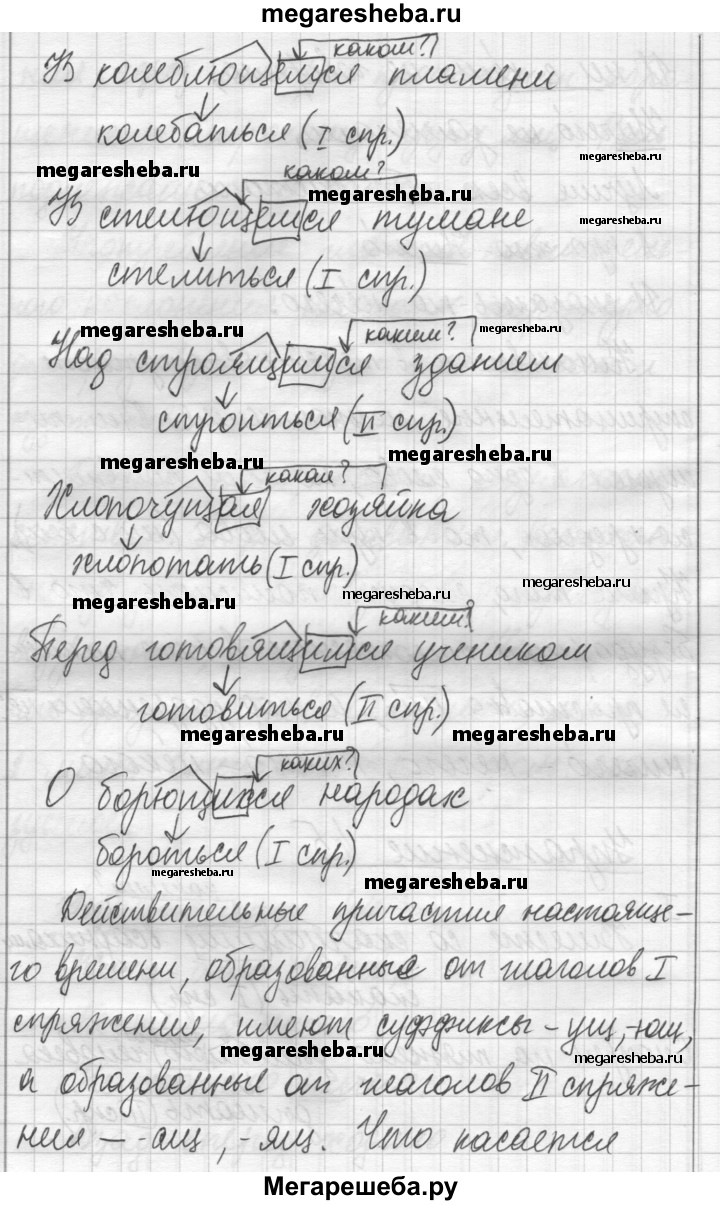 megaresheba.ru
каком?
В колеблющемся пламени
колебаться (I спр.)
megaresheba.ru
megaresheba.ru
каком?
megaresheba.ru
В стелющемся тумане
megaresheba.ru
стелиться (I спр.)
megaresheba.ru
каким?
megaresheba.ru
Над строящимся зданием
строиться (II спр.)
megaresheba.ru
megaresheba.ru
какая?
Хлопочущая хозяйка
хлопотать (I спр.)
megaresheba.ru
megaresheba.ru
megaresheba.ru
каким?
Перед готовящимся учеником
готовиться (II спр.)
megaresheba.ru
megaresheba.ru
каких?
О борющихся народах
бороться (I спр.)
megaresheba.ru
megaresheba.ru
Действительные причастия настояще-
го времени, образованные от глаголов I
спряжения, имеют суффиксы -ущ,-ющ,
megaresheba.ru
megaresheba.ru
а образованные от глаголов II спряже-
ния — -ащ, -ящ. Что касается
Мегарешеба.ру